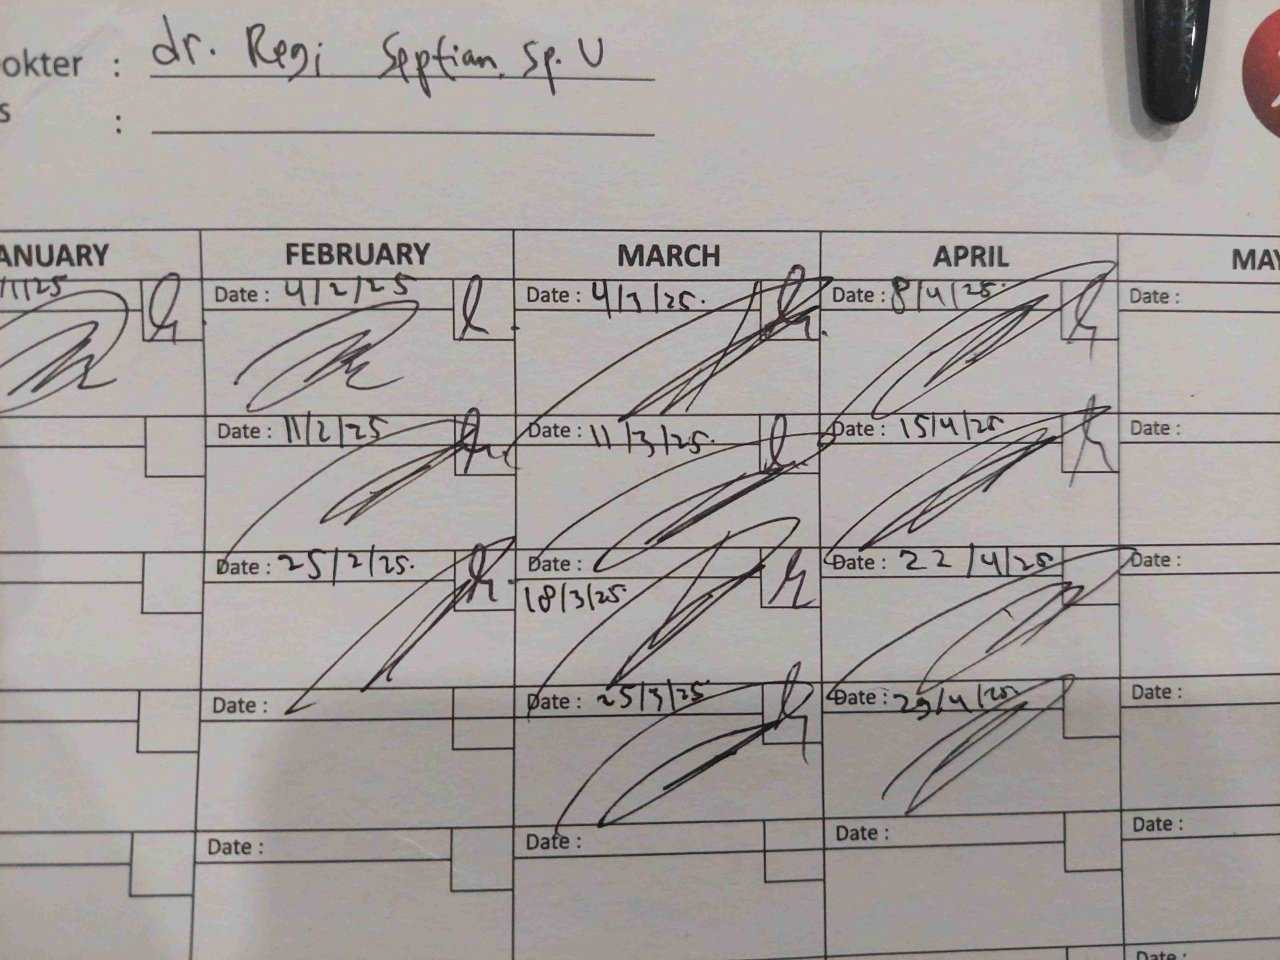 okter : dr. Regi Septian, Sp. U
s :
ANUARY FEBRUARY MARCH APRIL MAY
/1/25 Date : 4/2/25 Date : 4/3/25. Date : 8/4/25. Date :
Date : 11/2/25 Date : 11/3/25. Date : 15/4/25 Date :
Date : 25/2/25. Date : Date : 22/4/25. Date :
18/3/25.
Date : Date : 25/3/25 Date : 29/4/25. Date :
Date : Date : Date : Date :
Date :